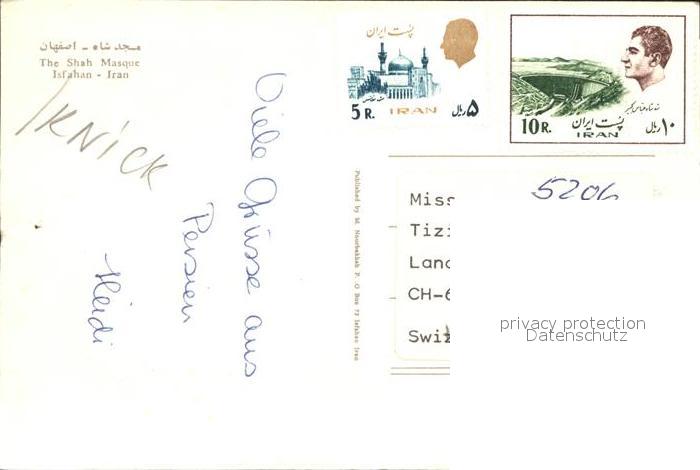 مسجد شاه - اصفهان
The Shah Masque
Isfahan - Iran
KNICK
Viele Grüsse aus
Persien
Heidi
Published by M. Noorbakhsh P. O Box 73 Isfahan Iran
پست ایران
5 R.
IRAN
۵ ریال
10 R.
پست ایران
IRAN
۱۰ ریال
5206
Miss
Tizi
Land
CH-6
Swiz
privacy protection
Datenschutz